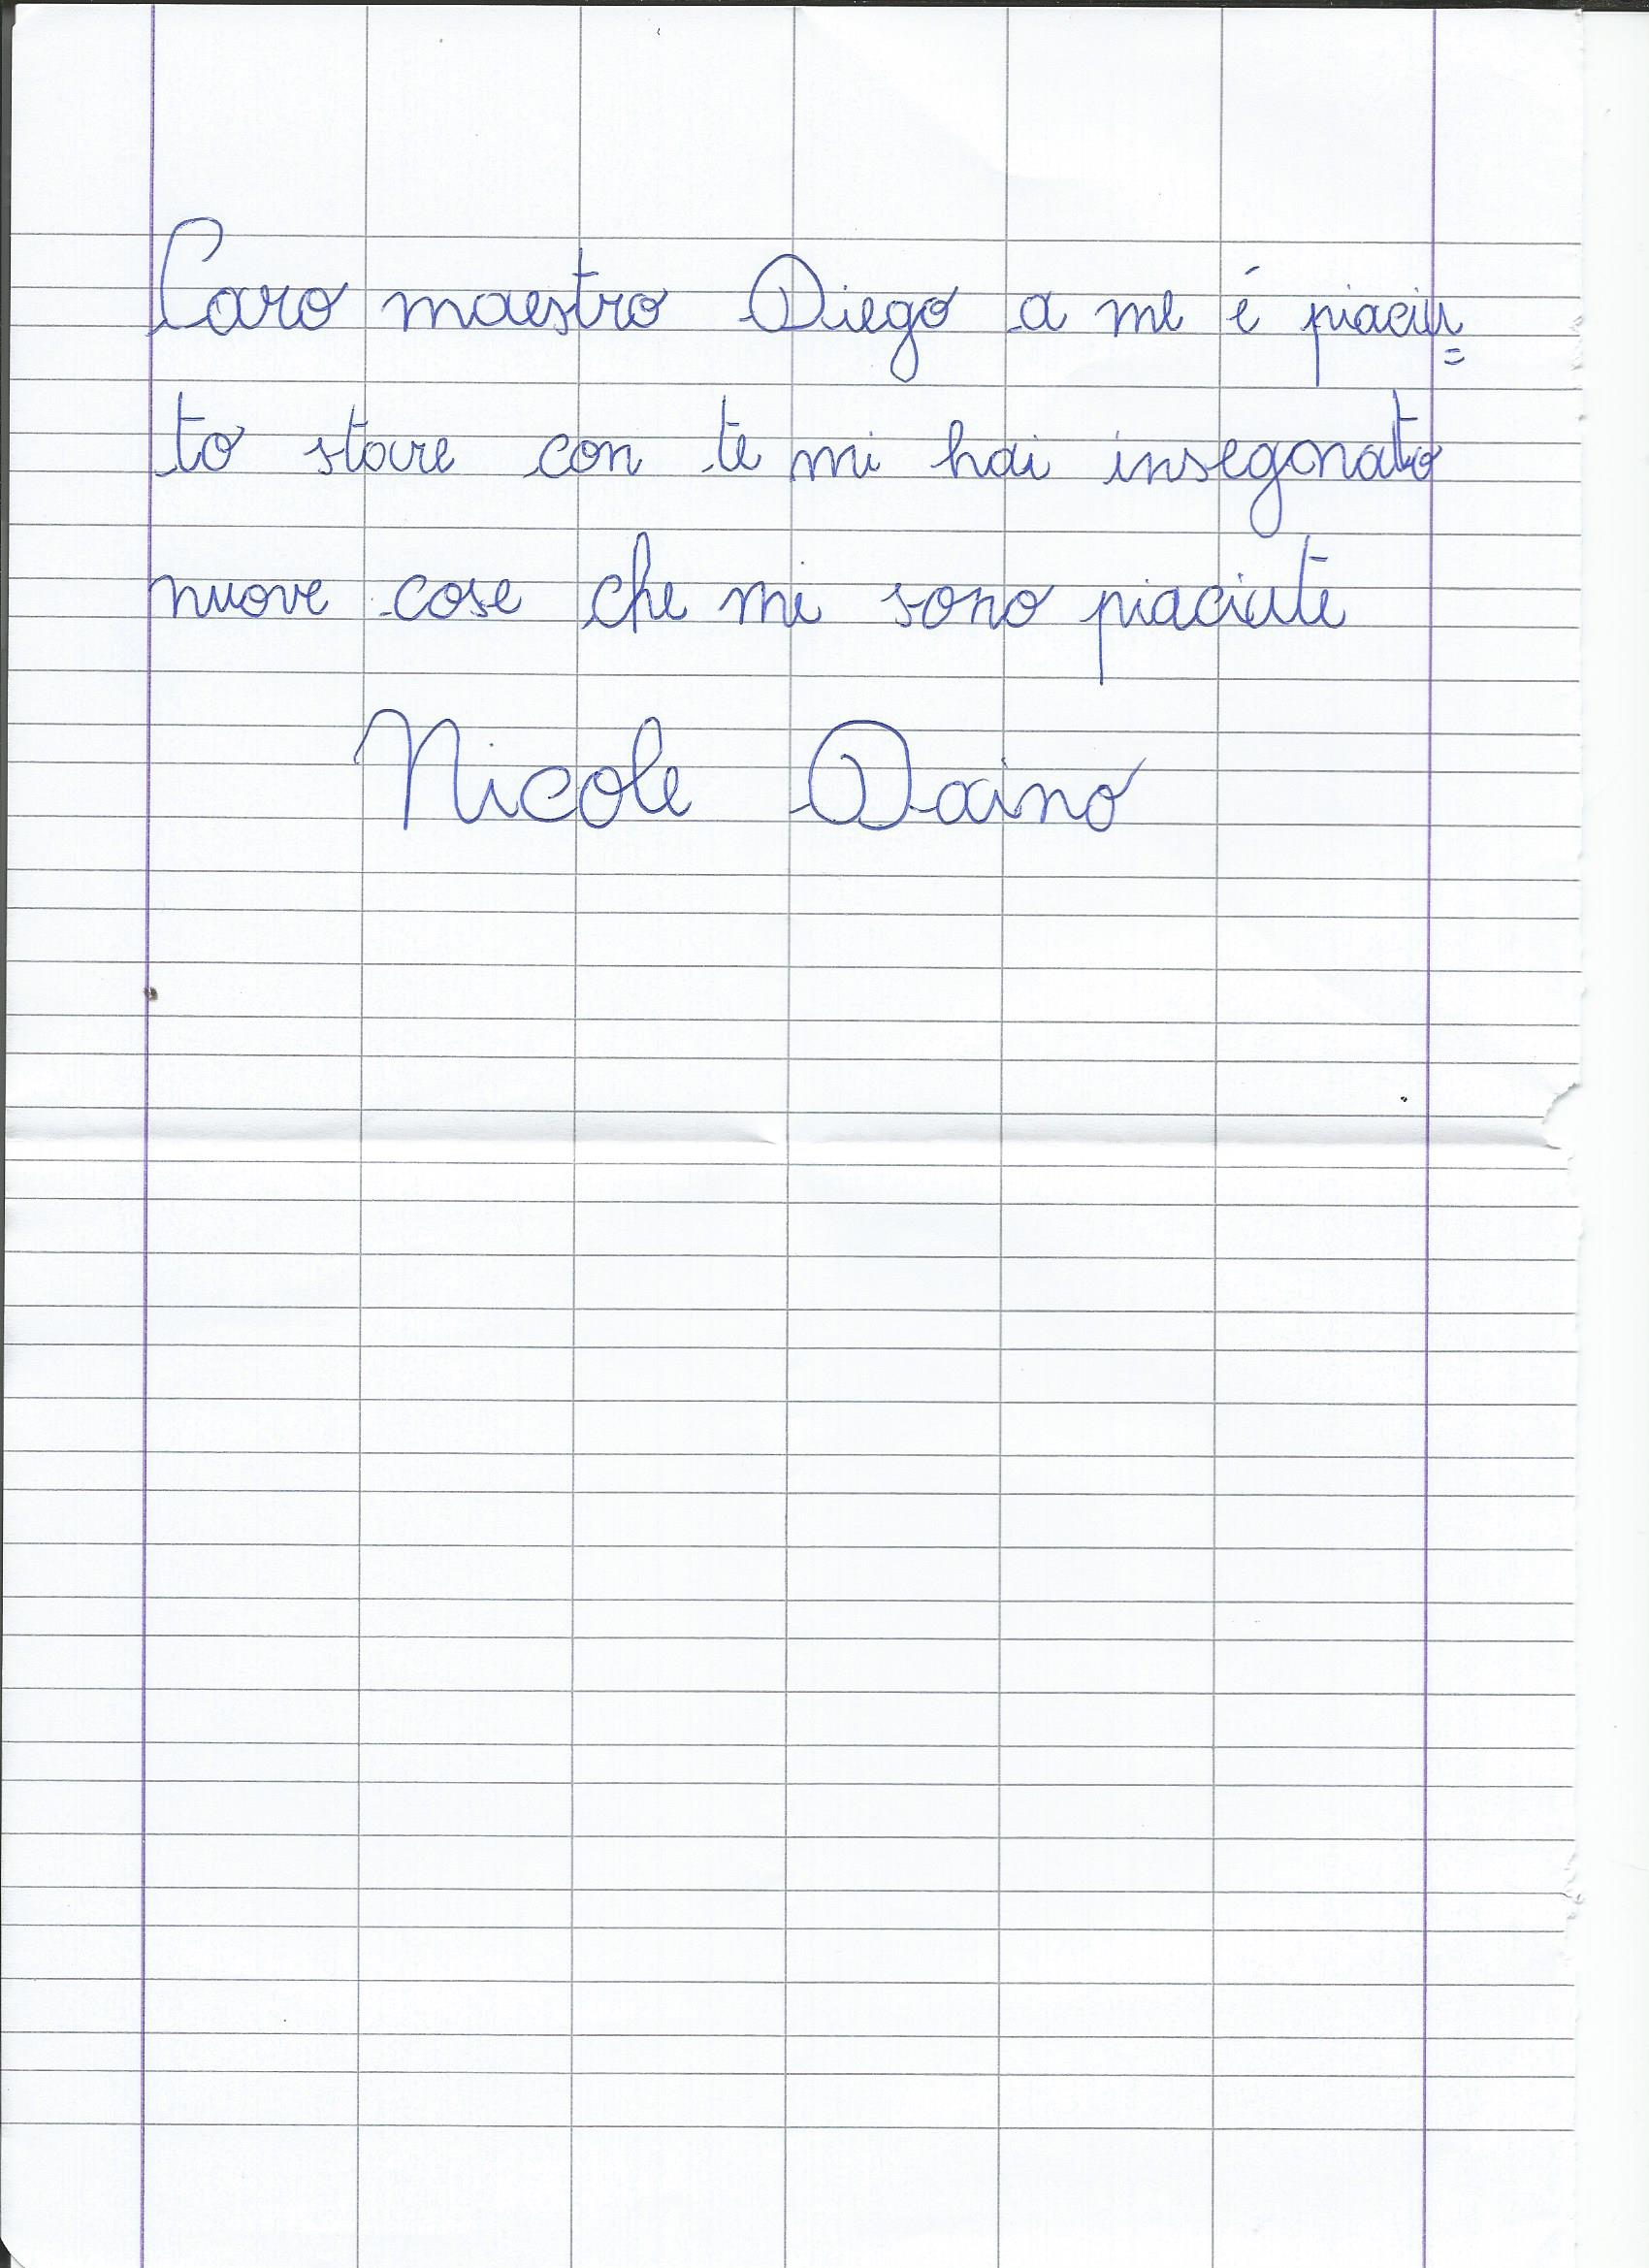 Caro maestro Diego a me é piaciu=
to stare con te mi hai insegnato
nuove cose che mi sono piaciute
Nicole Daino